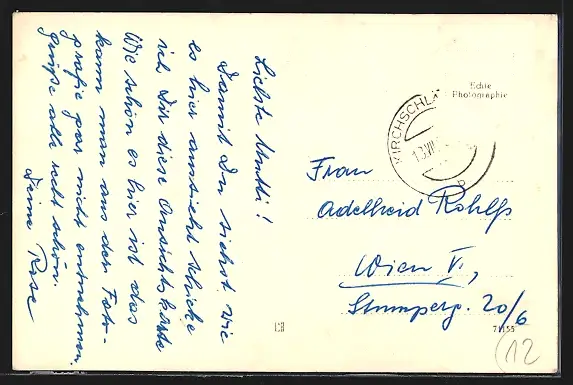 Liebste Mutti!
Damit Du siehst wie
es hier aussieht schicke
ich Dir diese Ansichtskarte
Wie schön es hier ist das
kann man aus der Foto-
grafie gar nicht entnehmen.
grüße alle recht schön.
Deine Rose
Echte
Photographie
KIRCHSCHLA
13.VII
Frau
Adelheid Rohlfs
Wien VI,
Stumperg. 20/6
71155
12